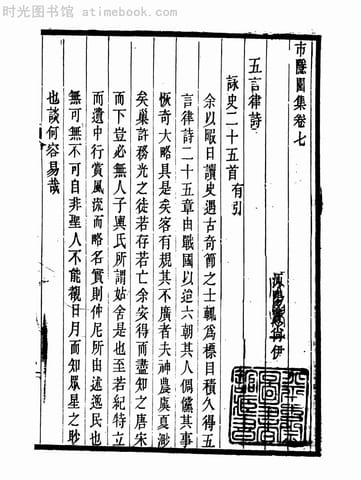 时光图书馆 - atimebook.com
市隱園集卷七
尊伊
五言律詩
詠史二十五首有引
余以暇日讀史遇古奇節之士輒爲標目積久得五
言律詩二十五章由戰國以迨六朝其人倜儻其事
恢奇大略具是矣客有規其不廣者夫神農虞夏渺
矣巢許務光之徒若存若亡余安得而盡知之唐宋
而下豈必無人子輿氏所謂姑舍是也至若紀特立
而遺中行賞風流而略名實則仲尼所由述逸民也
無可無不可自非聖人不能覩日月而知眾星之眇
也談何容易哉